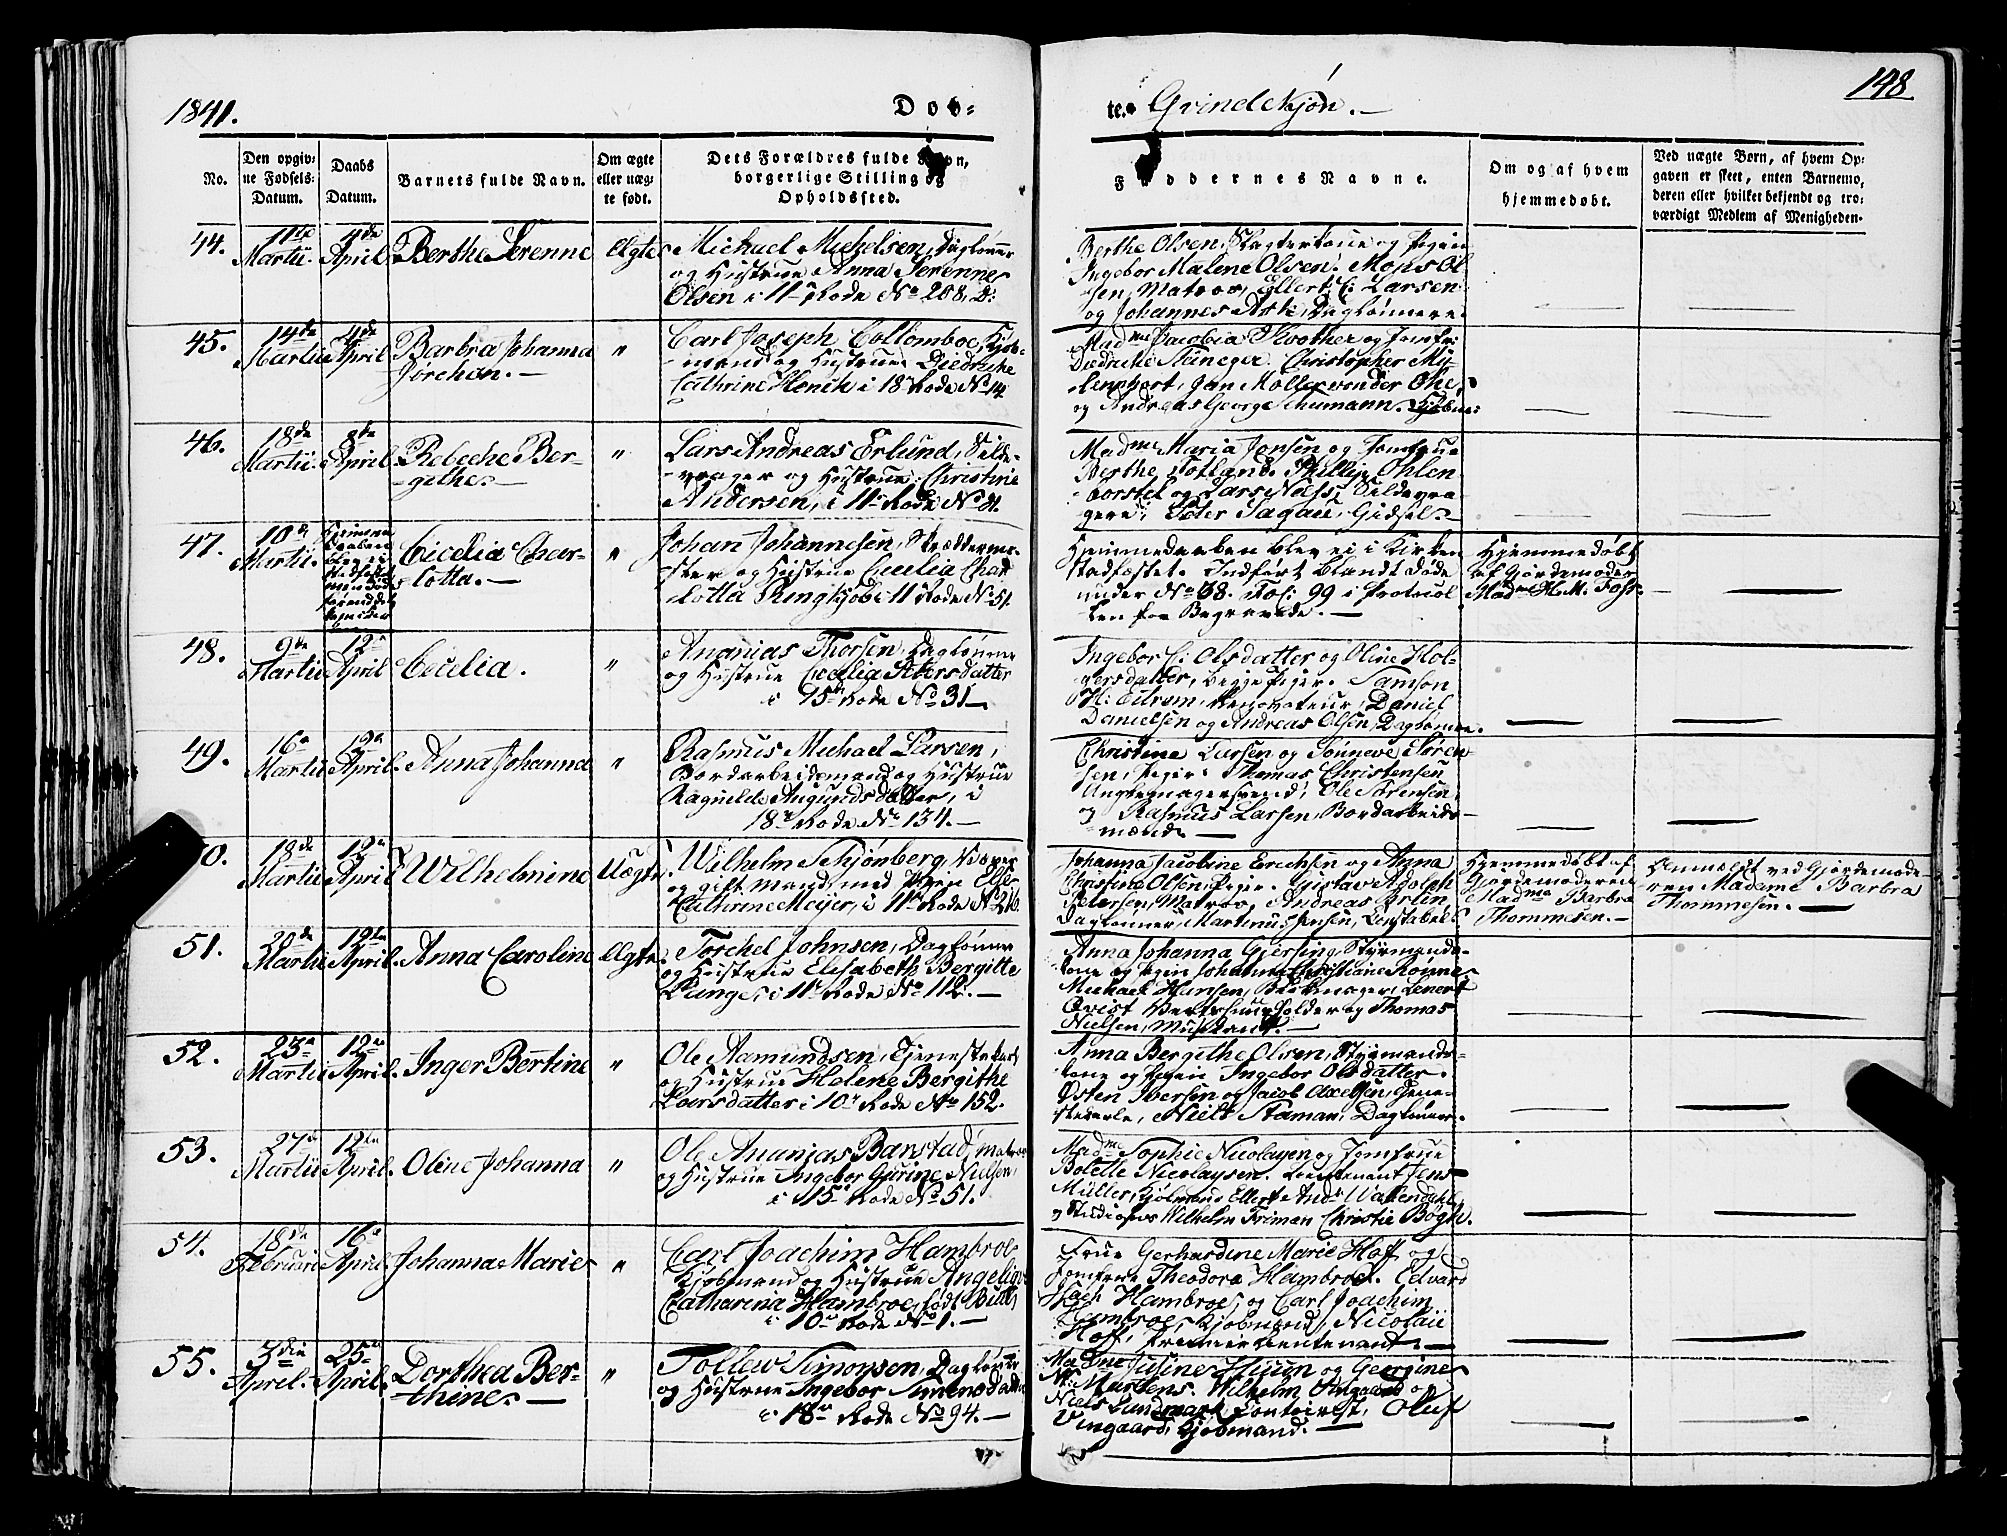 1841.
Døb-
te. Qvindekjøn.
148
No.
Den opgiv-
ne Fødsels-
Datum.
Daabs
Datum.
Barnets fulde Navn.
Om ægte
eller uæg-
te født.
Dets Forældres fulde Navn,
borgerlige Stilling og
Opholdssted.
Faddernes Navne.
Om og af hvem
hjemmedøbt.
Ved uægte Børn, af hvem Op-
gaven er skeet, enten Barnemo-
deren eller hvilket bekjendt og tro-
værdigt Medlem af Menigheden.
44.
11te
Martii.
4de
April
Berthe Serenne
Ægte
Michael Michelsen, Daglønner
og Hustrue Anna Serenne
Olsen i 11te Rode No 208, D:
Berthe Olsen, Slagterkone og Pigen
Ingebor Malene Olsen. Mons Ol-
sen, Matros, Ellert C: Larsen
og Johannes Ask, Daglønnere.
45.
14de
Martii
4de
April
Barbra Johanna
Jørchen.
"
Carl Joseph Collomboe, Kjøb-
mand og Hustrue Diedriche
Cathrine Henich i 18de Rode No 14
Madme Jacobia
og Jomfr:
Christopher My-
lenphort, Jan Møller vonder Ohe,
og Andreas George Schumann.
46.
18de
Martii.
8de
April
Rebecke Ber-
gethe.
"
Lars Andreas Erlund, Silde-
vrager og Hustrue Christine
Andersen, i 11te Rode No
Madme Maria Jensen og Jomfrue
Berthe Totland. Phillip Ohlen-
borstel og Lars Næss, Sildevra-
gere, Peter Sagau, Gidsel.
47.
10de
Martii.
Hjemme-
daaben
blev ei
stadfæstet
Cicelia Char-
lotta.
"
Johan Johannesen, Skrædderme-
ster og Hustrue Cecelia Char-
lotta Ringkjøb i 11te Rode No 51.
Hjemmedaaben blev ei i Kirken
stadfæstet. Indført blandt Døde
under No 68. Fol: 99 i Protocol-
len for Begravede.
Hjemmedøbt
af Gjordemoder
Madme H. M. Foss.
48.
9de
Martii
12te
April
Cecelia.
"
Ananias Thorsen, Daglønner
og Hustrue Cecelia Petersdatter
i 15de Rode No 31
Ingebor C: Olsdatter og Oline Hol-
gersdatter, begge Piger. Samson
H: Eitrem, Renovateur, Daniel
Danielsen og Andreas Olsen, Daglønnere.
49.
16de
Martii
12te
April.
Anna Johanna
"
Rasmus Michael Larsen,
Bordarbeidsmand og Hustrue
Ragnelde Augundsdatter, i
18de Rode No 134.
Christine Larsen og Sønneve Søren-
sen, Piger. Thomas Christensen
Ole Sørensen
og Rasmus Larsen, Bordarbeids-
mænd
50.
18de
Martii
12te
April
Wilhelmine
Uægte
Wilhelm Schjønberg,
og gift Mand, med Pige Else
Cathrine Meijer, i 11te Rode No 216.
Johanna Jacobine Erichsen og Anna
Christine Olsen, Piger. Gustav Adolph
Petersen, Matros, Andreas Erlin,
Daglønner, Martinus Jensen, Constabel
Hjemmedøbt af
Gjordemoderen
Madme Barbra
Thommesen.
Anmeldt ved Gjordemode-
ren Madame Barbra
Thommesen.
51.
20de
Martii
12te
April.
Anna Caroline
Ægte.
Torchel Johnsen, Dagløner
og Hustrue Elisabeth Bergitte
Lunge, i 11te Rode No 112.
Anna Johanna Gjersing, Styrmands-
kone og Pigen Johanne Christiane Rønne
Michael Hansen, Blokmager, Lenert
Qvist Vertshuusholder og Thomas
Nielsen, Musicant.
52.
23de
Martii
12te
April.
Inger Bertine
"
Ole Aamundsen, Tjenestekarl
og Hustrue Helene Bergithe
Larsdatter i 10de Rode No 152.
Anna Bergithe Olsen, Styrmands-
kone og Pigen Ingebor Olsdatter.
Østen Iversen og Jacob Axelsen, Tjene-
stekarle, Niels Staman, Dagløner.
53.
27de
Martii
12te
April.
Oline Johanna
"
Ole Ananias Banstad, Matros
og Hustrue Ingebor Gurine Nielsen,
i 15de Rode No 51.
Madme Sophie Nicolaysen og Jomfrue
Bolette Nicolaysen. Lieutenant Jens
Müller, Kjøbmand Ellert And: Wallendahl
og Studiosus Wilhelm Friman Christie Bøgh.
54.
18de
Februari
16de
April.
Johanna Marie
"
Carl Joachim Hambroe
Kjøbmand og Hustrue Angelique
Catharina Hambroe, født Bull,
i 10de Rode No 1.
Frue Gerhardine Marie Hoff og
Jomfrue Theodora Hambroe. Edvard
Isach Hambroe, og Carl Joachim
Hambroe, Kjøbmænd, Nicolai
Hoff, Premierlieutenant.
55.
3die
April.
25de
April.
Dorthea Ber-
thine.
"
Tollew Simonsen, Dagløner
og Hustrue Ingebor Simonsdatter
i 18de Rode No 94.
Madme Juline Huun og Georgine
M: Martens. Wilhelm Vingaard og
Niels Lundmark, Contoirist, Oluf
Vingaard, Kjøbmand.